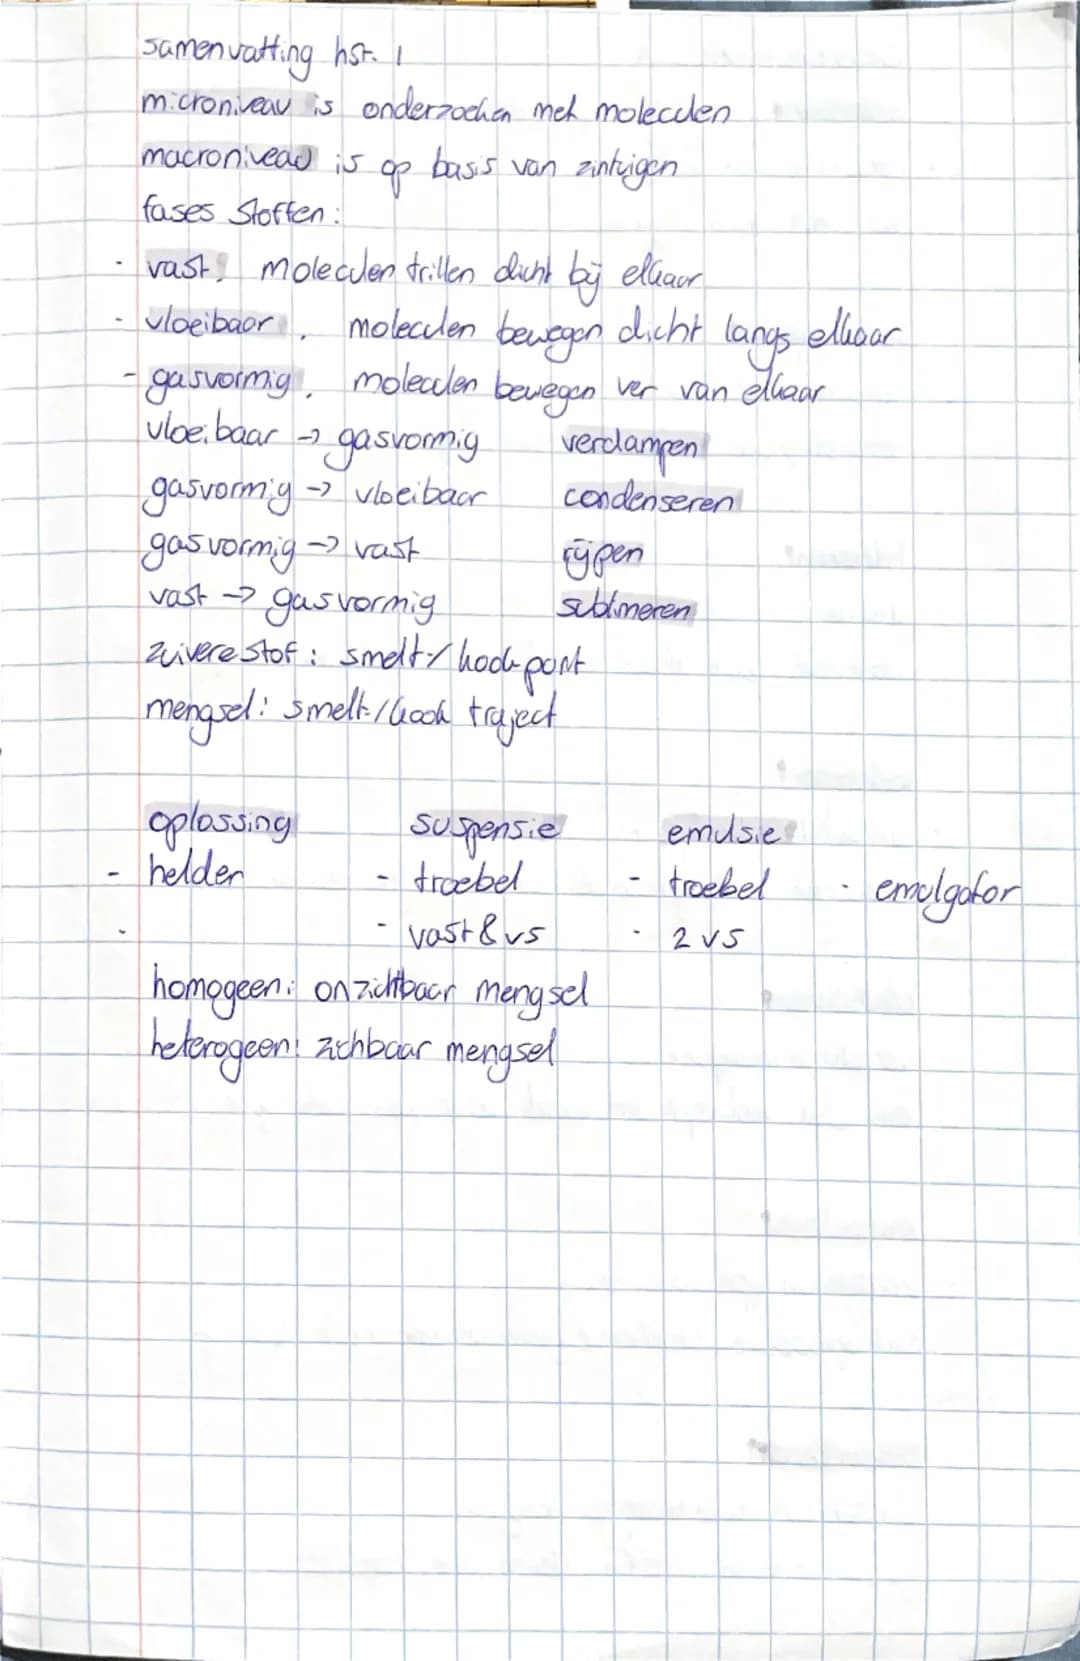 samenvatting hst. 1
microniveau is onderzoeken met moleculen
macroniveau is op basis van zintuigen
fases stoffen:
- vast, moleculen trillen dicht bij elkaar
- vloeibaar, moleculen bewegen dicht langs elkaar
- gasvormig, moleculen bewegen ver van elkaar
vloeibaar -> gasvormig verdampen
gasvormig -> vloeibaar condenseren
gasvormig -> vast rijpen
vast -> gasvormig sublimeren
zuivere stof: smelt-/kookpunt
mengsel: smelt-/kook traject
oplossing suspensie emulsie
- helder - troebel - troebel - emulgator
- - vast & vs - 2 vs
homogeen: onzichtbaar mengsel
heterogeen: zichbaar mengsel